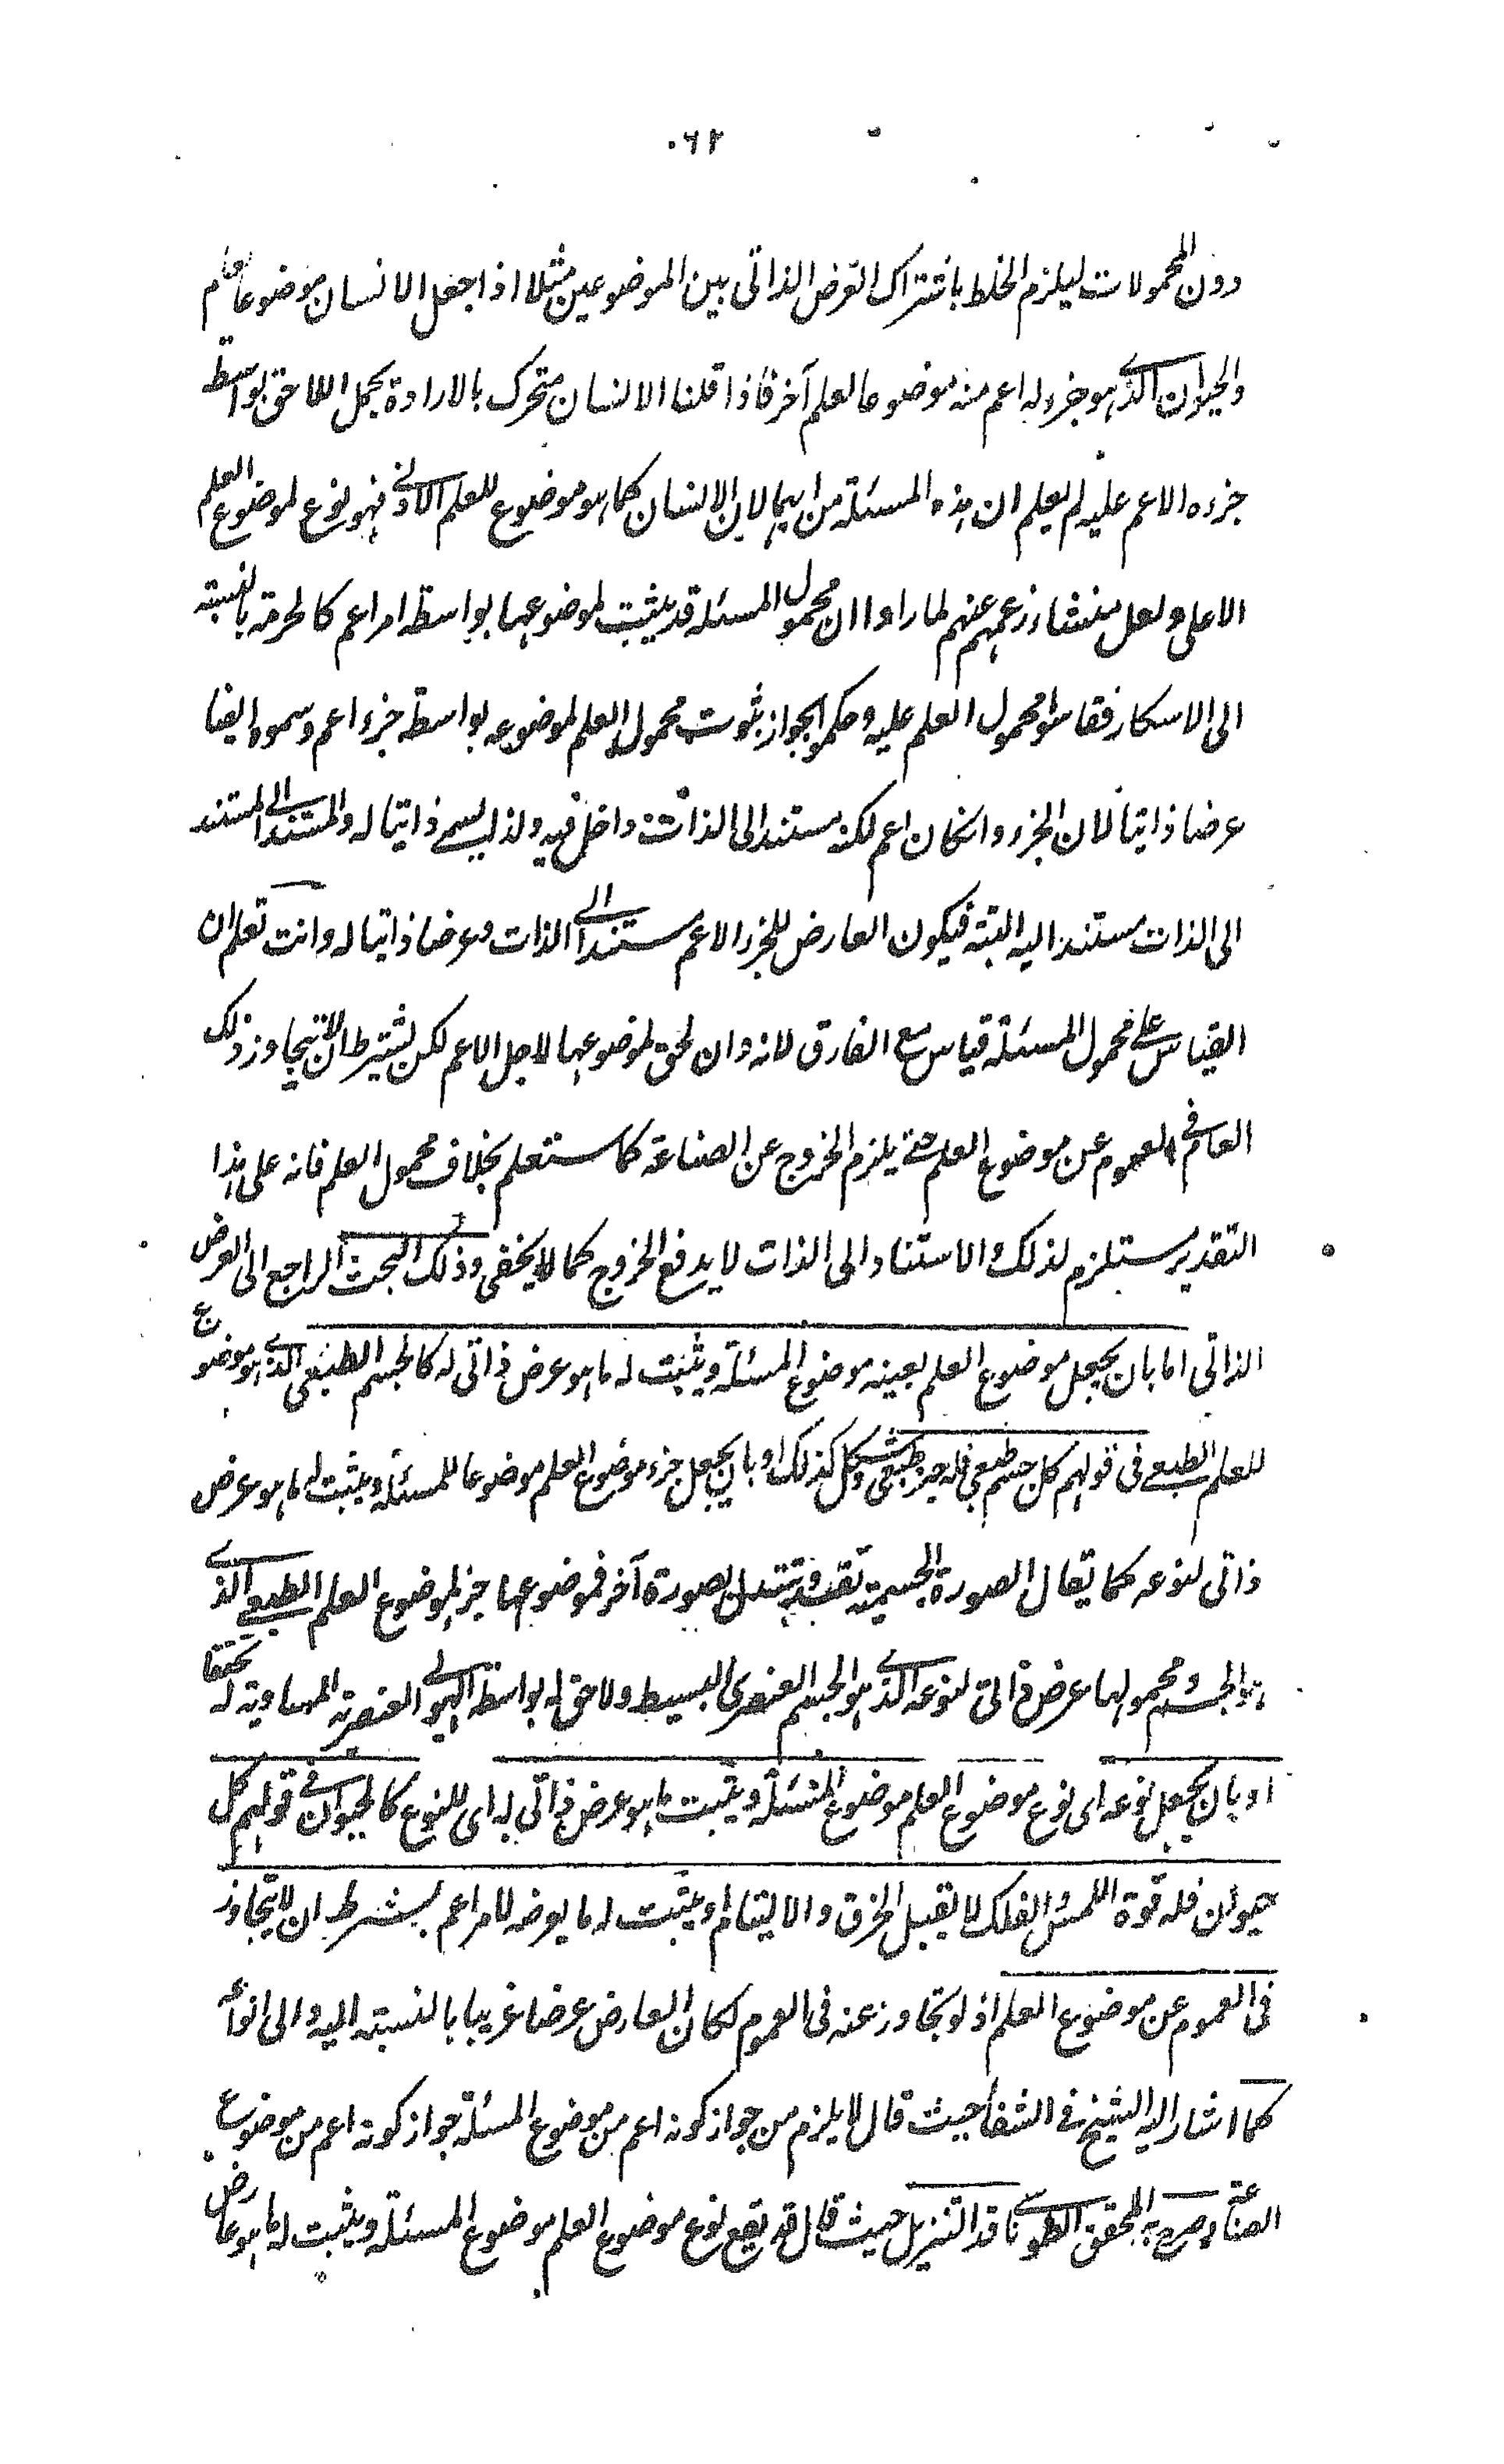 ٦٢
دون المحمولات ليلزم الخلط باشتراك العرض الذاتى بين الموضوعين مثلا اذا جعل الانسان موضوعا لعلم
والحيوان الذے هو جزء له اعم منه موضوعا لعلم آخر فاذا قلنا الانسان متحرك بالارادة بحمل اللاحق بواسطة
جزءه الاعم عليه لم يعلم ان هذه المسئلة من ايهما لان الانسان كما هو موضوع للعلم الادنے فهو نوع لموضوع العلم
الاعلى ولعل منشاء زعمهم عنهم لما راوا ان محمول المسئله قد يثبت لموضوعها بواسطة امر اعم كالحرمة بالنسبة
الى الاسكار فقاسوا محمول العلم عليه وحكموا بجواز ثبوت محمول العلم لموضوعه بواسطة جزء اعم وسموه ايضا
عرضا ذاتيا لان الجزء وانكان اعم لكنه مستند الى الذات داخل فيه ولذا يسمے ذاتيا له والمستند الى المستند
الى الذات مستند اليه البتة فيكون العارض للجزء الاعم مستندا الے الذات وعرضا ذاتيا له وانت تعلم ان
القياس علے محمول المسئلة قياس مع الفارق لانه وان لحق لموضوعها لاجل الاعم لكن يشترط ان لا يتجاوز ذلك
العام فے العموم عن موضوع العلم حتے يلزم الخروج عن الصناعة كما ستعلم بخلاف محمول العلم فانه على هذا
التقدير مستلزم لذلك والاستناد الى الذات لا يدفع الخروج كما لا يخفى وذلك البحث الراجع الى العرض
الذاتى اما بان يجعل موضوع العلم بعينه موضوع المسئلة ويثبت له ما هو عرض ذاتى له كالجسم الطبعى الذے هو موضوع
للعلم الطبعے فى قولهم كل جسم طبعى فله حيز طبعى وشكل كذلك او بان يجعل جزء موضوع العلم موضوعا للمسئلة ويثبت له ما هو عرض
ذاتى لنوعه كما يقال الصورة الجسمية تفسد وتتبدل بصورة آخر فموضوعها جزء لموضوع العلم الطبعے الذے
هو الجسم ومحمولها عرض ذاتى لنوعه الذے هو الجسم العنصرى البسيط ولاحق له بواسطة الهيولے العنصرية المساوية له تحققا
او بان يجعل نوعه اى نوع موضوع العلم موضوع المسئلة ويثبت ما هو عرض ذاتى له اى للنوع كالحيوان فے قولهم كل
حيوان فله قوة اللمس والفلك لا يقبل الخرق والالتيام او يثبت له ما يعرضه لامر اعم بشرط ان لا يتجاوز
فى العموم عن موضوع العلم اذ لو تجاوز عنه فى العموم لكان العارض عرضا غريبا بالنسبة اليه والى انواعه
كما اشار اليه الشيخ فے الشفا حيث قال لا يلزم من جواز كونه اعم من موضوع المسئلة جواز كونه اعم من موضوع
الصناعة وصرح به المحقق الطوسے ناقد التنزيل حيث قال قد يقع نوع موضوع العلم موضوع المسئلة ويثبت له ما هو عارض